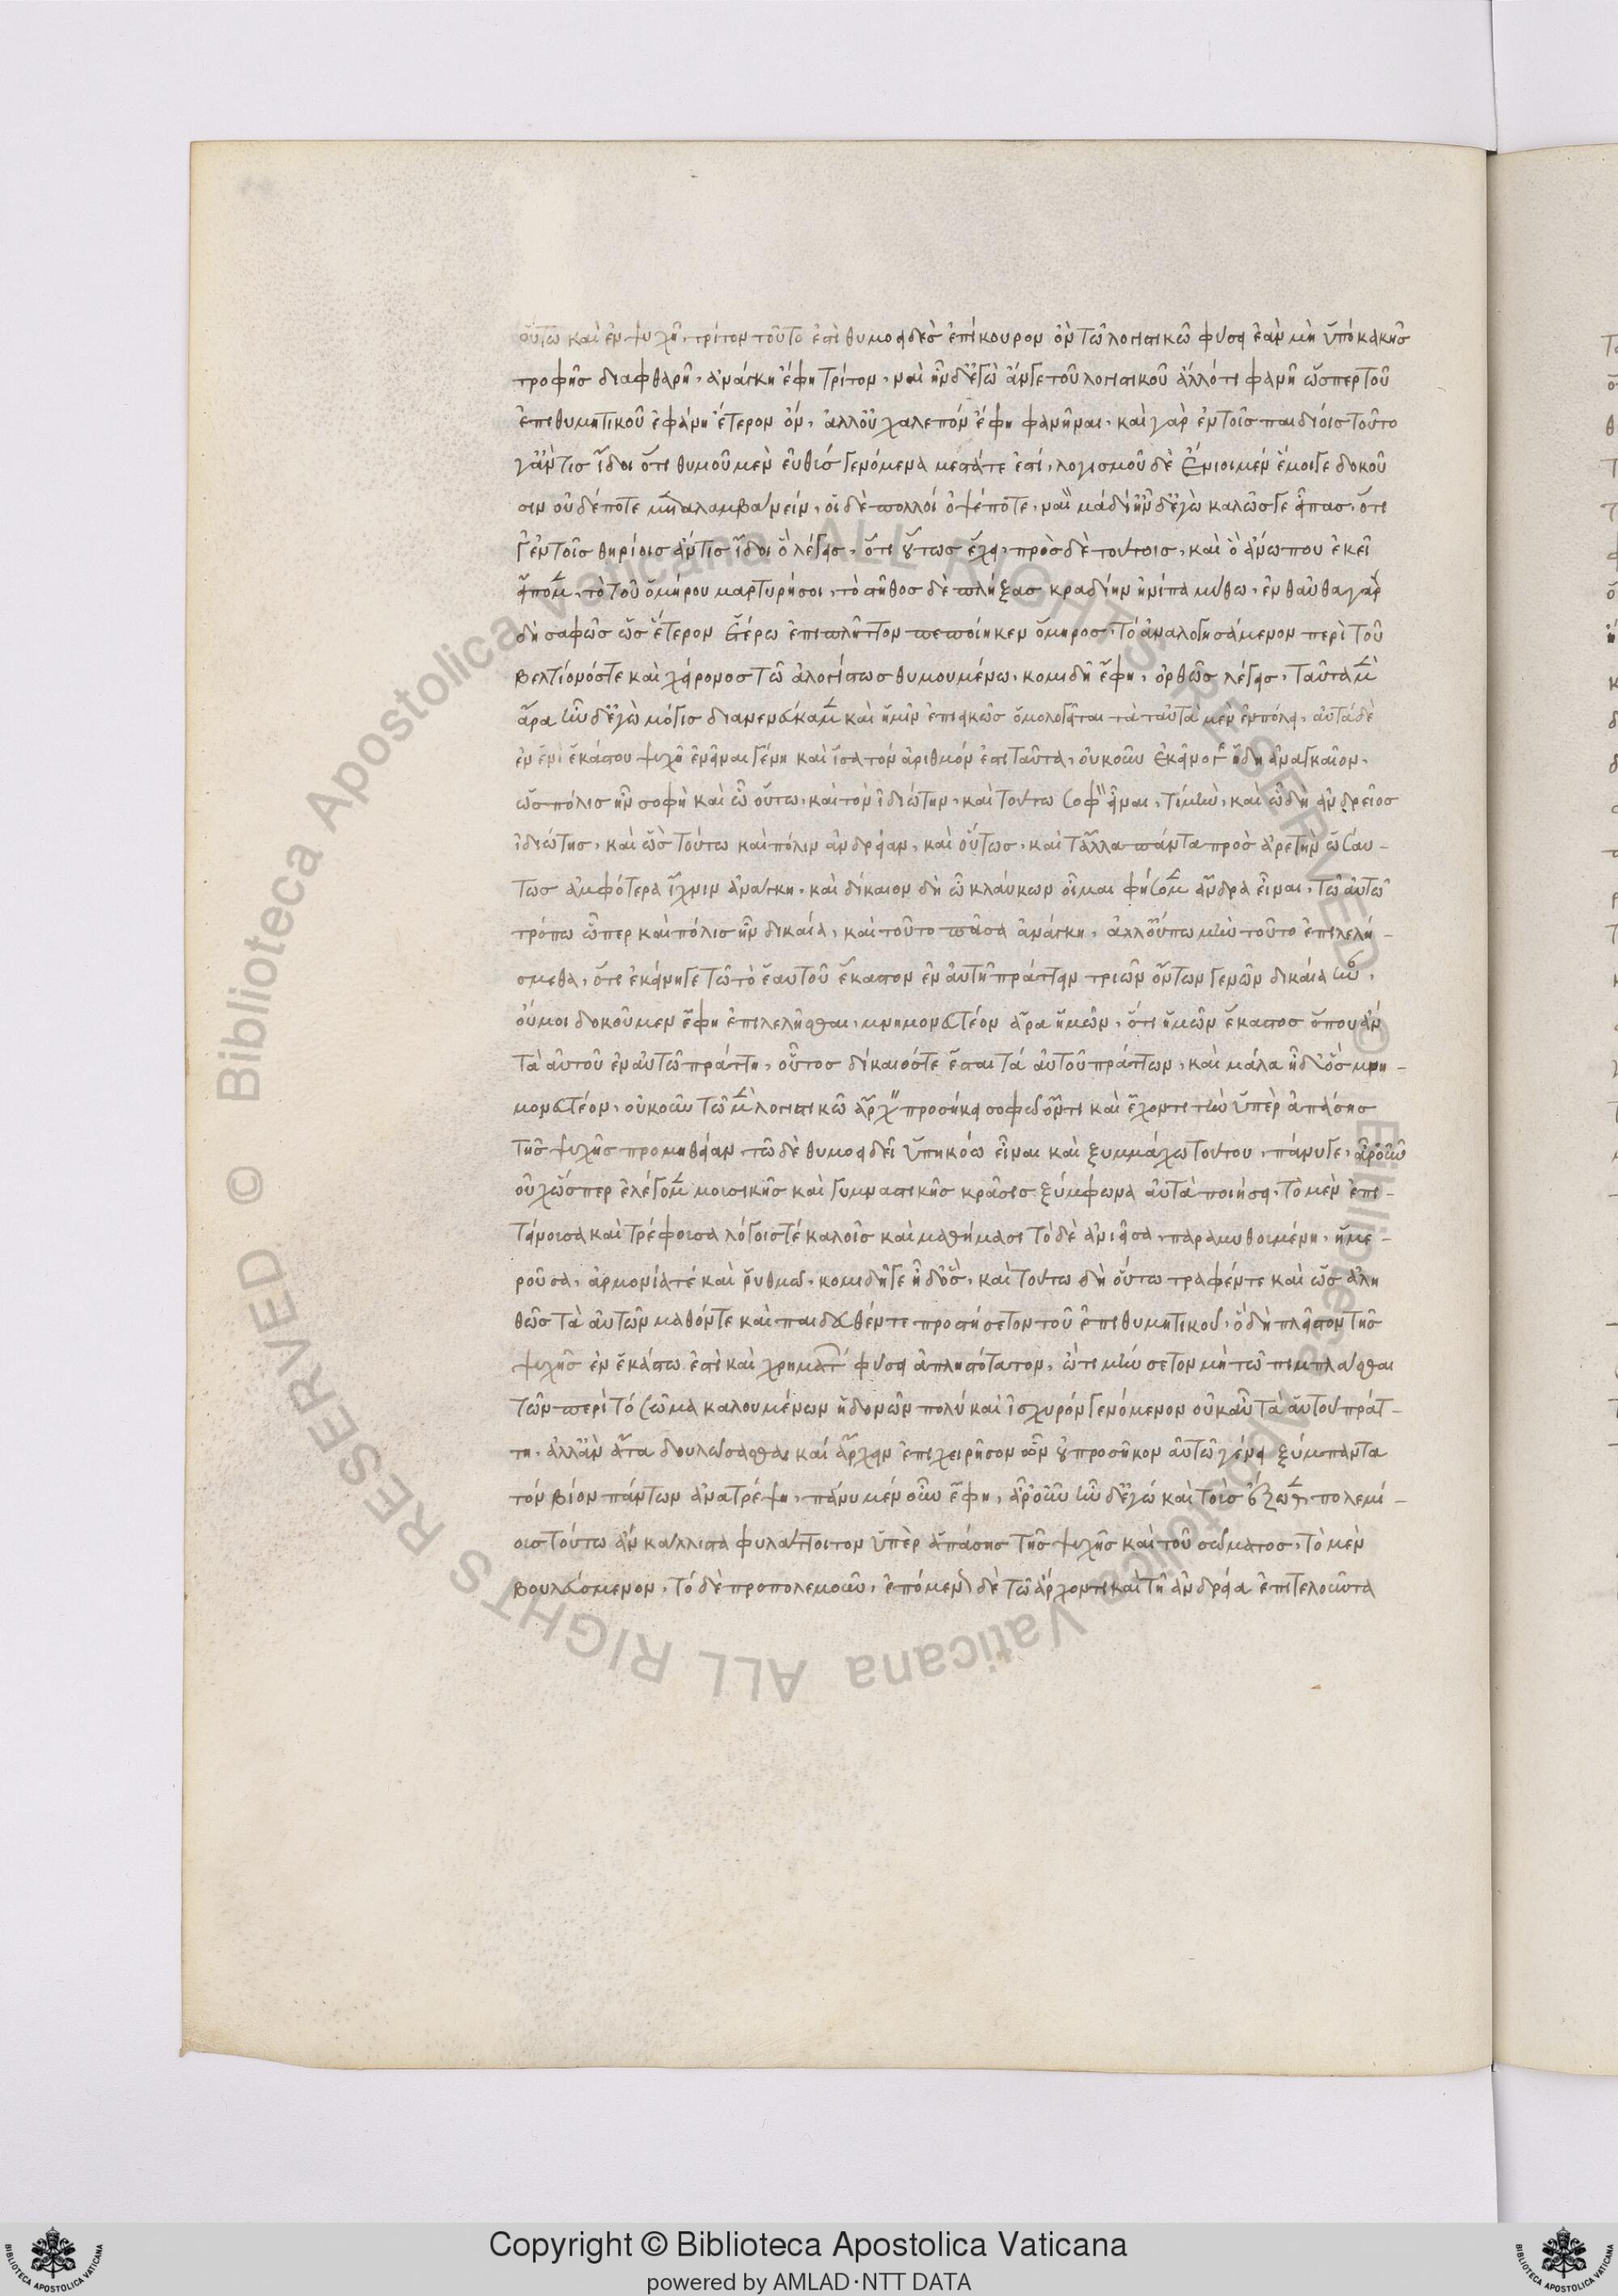 οὕτω καὶ ἐν ψυχῆ τρίτον τοῦτό ἐστι θυμοειδὲς ἐπίκουρον ὂν τῶ λογιστικῶ φύσει ἐὰν μὴ ὑπὸ κακῆς
τροφῆς διαφθαρῆ, ἀνάγκη ἔφη τρίτον, ναὶ ἦν δ' ἐγὼ ἄν γε τοῦ λογιστικοῦ ἄλλό τι φανῆ ὥσπερ τοῦ
ἐπιθυμητικοῦ ἐφάνη ἕτερον ὄν, ἀλλ' οὐ χαλεπόν ἔφη φανῆναι, καὶ γὰρ ἐν τοῖς παιδίοις τοῦτο
γ' ἄν τις ἴδοι ὅτι θυμοῦ μὲν εὐθὺς γενόμενα μεστά τε ἐστί, λογισμοῦ δὲ ἔνιοι μέν ἔμοιγε δοκοῦ
σιν οὐδέποτε μεταλαμβάνειν, οἱ δὲ πολλοί ὀψέ ποτε, ναὶ μὰ δί' ἦν δ' ἐγὼ καλῶς γε εἶπας, ὅτι
γ' ἐν τοῖς θηρίοις ἄν τις ἴδοι ὃ λέγεις, ὅτι οὕτως ἔχει, πρὸς δὲ τούτοις, καὶ ὃ ἄνω που ἐκεῖ
εἴπομεν, τὸ τοῦ ὁμήρου μαρτυρήσει, τὸ στῆθος δὲ πλήξας κραδίην ἠνίπαπε μύθω, ἐνθαῦθα γὰρ
δὴ σαφῶς ὡς ἕτερον ἑτέρω ἐπιπλῆττον πεποίηκεν ὅμηρος, τὸ ἀναλογησάμενον περὶ τοῦ
βελτίονός τε καὶ χείρονος τῶ ἀλογίστως θυμουμένω, κομιδῆ ἔφη, ὀρθῶς λέγεις, ταῦτα μὲν
ἄρα ἦν δ' ἐγὼ μόγις διανενεύκαμεν καὶ ἡμῖν ἐπιεικῶς ὁμολογεῖται τὰ ταὐτὰ μὲν ἐν πόλει, αὐτὰ δὲ
ἐν ἑνὶ ἑκάστου ψυχῆ ἐνεῖναι γένη καὶ ἴσα τὸν ἀριθμόν ἔστι ταῦτα, οὐκοῦν ἐκεῖνό γε ἤδη ἀναγκαῖον,
ὡς πόλις ἦν σοφὴ καὶ ὧ οὕτω, καὶ τὸν ἰδιώτην, καὶ τούτω σοφὸν εἶναι, τί μὴν, καὶ ὧ δὴ ἀνδρεῖος
ἰδιώτης, καὶ ὡς τούτω καὶ πόλιν ἀνδρείαν, καὶ οὕτως, καὶ τἄλλα πάντα πρὸς ἀρετὴν ὡσαύ-
τως ἀμφότερα ἔχειν ἀνάγκη, καὶ δίκαιον δὴ ὦ γλαύκων οἶμαι φήσομεν ἄνδρα εἶναι, τῶ αὐτῶ
τρόπω ὧπερ καὶ πόλις ἦν δικαία, καὶ τοῦτο πᾶσα ἀνάγκη, ἀλλ' οὔπω μὴν τοῦτο ἐπιλελή-
σμεθα, ὅτι ἐκείνη γε τῶ τὸ ἑαυτοῦ ἕκαστον ἐν αὐτῆ πράττειν τριῶν ὄντων γενῶν δικαία ἦν,
οὔ μοι δοκοῦμεν ἔφη ἐπιλελῆσθαι, μνημονευτέον ἄρα ἡμῶν, ὅτι ἡμῶν ἕκαστος ὅπου ἂν
τὰ αὑτοῦ ἐν αὐτῶ πράττη, οὗτος δίκαιός τε ἔσται τά αὑτοῦ πράττων, καὶ μάλα ἦ δ' ὃς μνη-
μονευτέον, οὐκοῦν τῶ μὲν λογιστικῶ ἄρχειν προσήκει σοφῶ ὄντι καὶ ἔχοντι τὴν ὑπὲρ ἁπάσης
τῆς ψυχῆς προμηθείαν, τῶ δὲ θυμοειδεῖ ὑπηκόω εἶναι καὶ ξυμμάχω τούτου, πάνυ γε, ἆρ' οὖν
οὐχ ὥσπερ ἐλέγομεν μουσικῆς καὶ γυμναστικῆς κρᾶσις ξύμφωνα αὐτὰ ποιήσει, τὸ μὲν ἐπι-
τείνουσα καὶ τρέφουσα λόγοις τέ καλοῖς καὶ μαθήμασι τὸ δὲ ἀνιεῖσα, παραμυθουμένη, ἡμε-
ροῦσα, ἁρμονία τέ καὶ ῥυθμῶ, κομιδῆ γε ἦ δ' ὅς, καὶ τούτω δὴ οὕτω τραφέντε καὶ ὡς ἀλη
θῶς τὰ αὑτῶν μαθόντε καὶ παιδευθέντε προστήσετον τοῦ ἐπιθυμητικοῦ, ὃ δὴ πλεῖστον τῆς
ψυχῆς ἐν ἑκάστω ἐστὶ καὶ χρημάτων φύσει ἀπληστότατον, ὃ τηρήσετον μὴ τῶ πίμπλασθαι
τῶν περὶ τό σῶμα καλουμένων ἡδονῶν πολύ καὶ ἰσχυρόν γενόμενον οὐκ αὖ τὰ αὑτοῦ πράτ-
τη, ἀλλὰ καταδουλώσασθαι καὶ ἄρχειν ἐπιχειρήση ὧν οὐ προσῆκον αὐτῶ γένει ξύμπαντα
τὸν βίον πάντων ἀνατρέψη, πάνυ μέν οὖν ἔφη, ἆρ' οὖν ἦν δ' ἐγώ καὶ τοὺς ἔξωθεν πολεμί-
ους τούτω ἂν κάλλιστα φυλάττοιτον ὑπὲρ ἁπάσης τῆς ψυχῆς καὶ τοῦ σώματος, τὸ μὲν
βουλευόμενον, τὸ δὲ προπολεμοῦν, ἑπόμενον δὲ τῶ ἄρχοντι καὶ τῆ ἀνδρεία ἐπιτελοῦντα
Biblioteca Apostolica Vaticana ALL RIGHTS RESERVED © Biblioteca Apostolica Vaticana ALL RIGHTS RESERVED ©
Copyright © Biblioteca Apostolica Vaticana
powered by AMLAD·NTT DATA